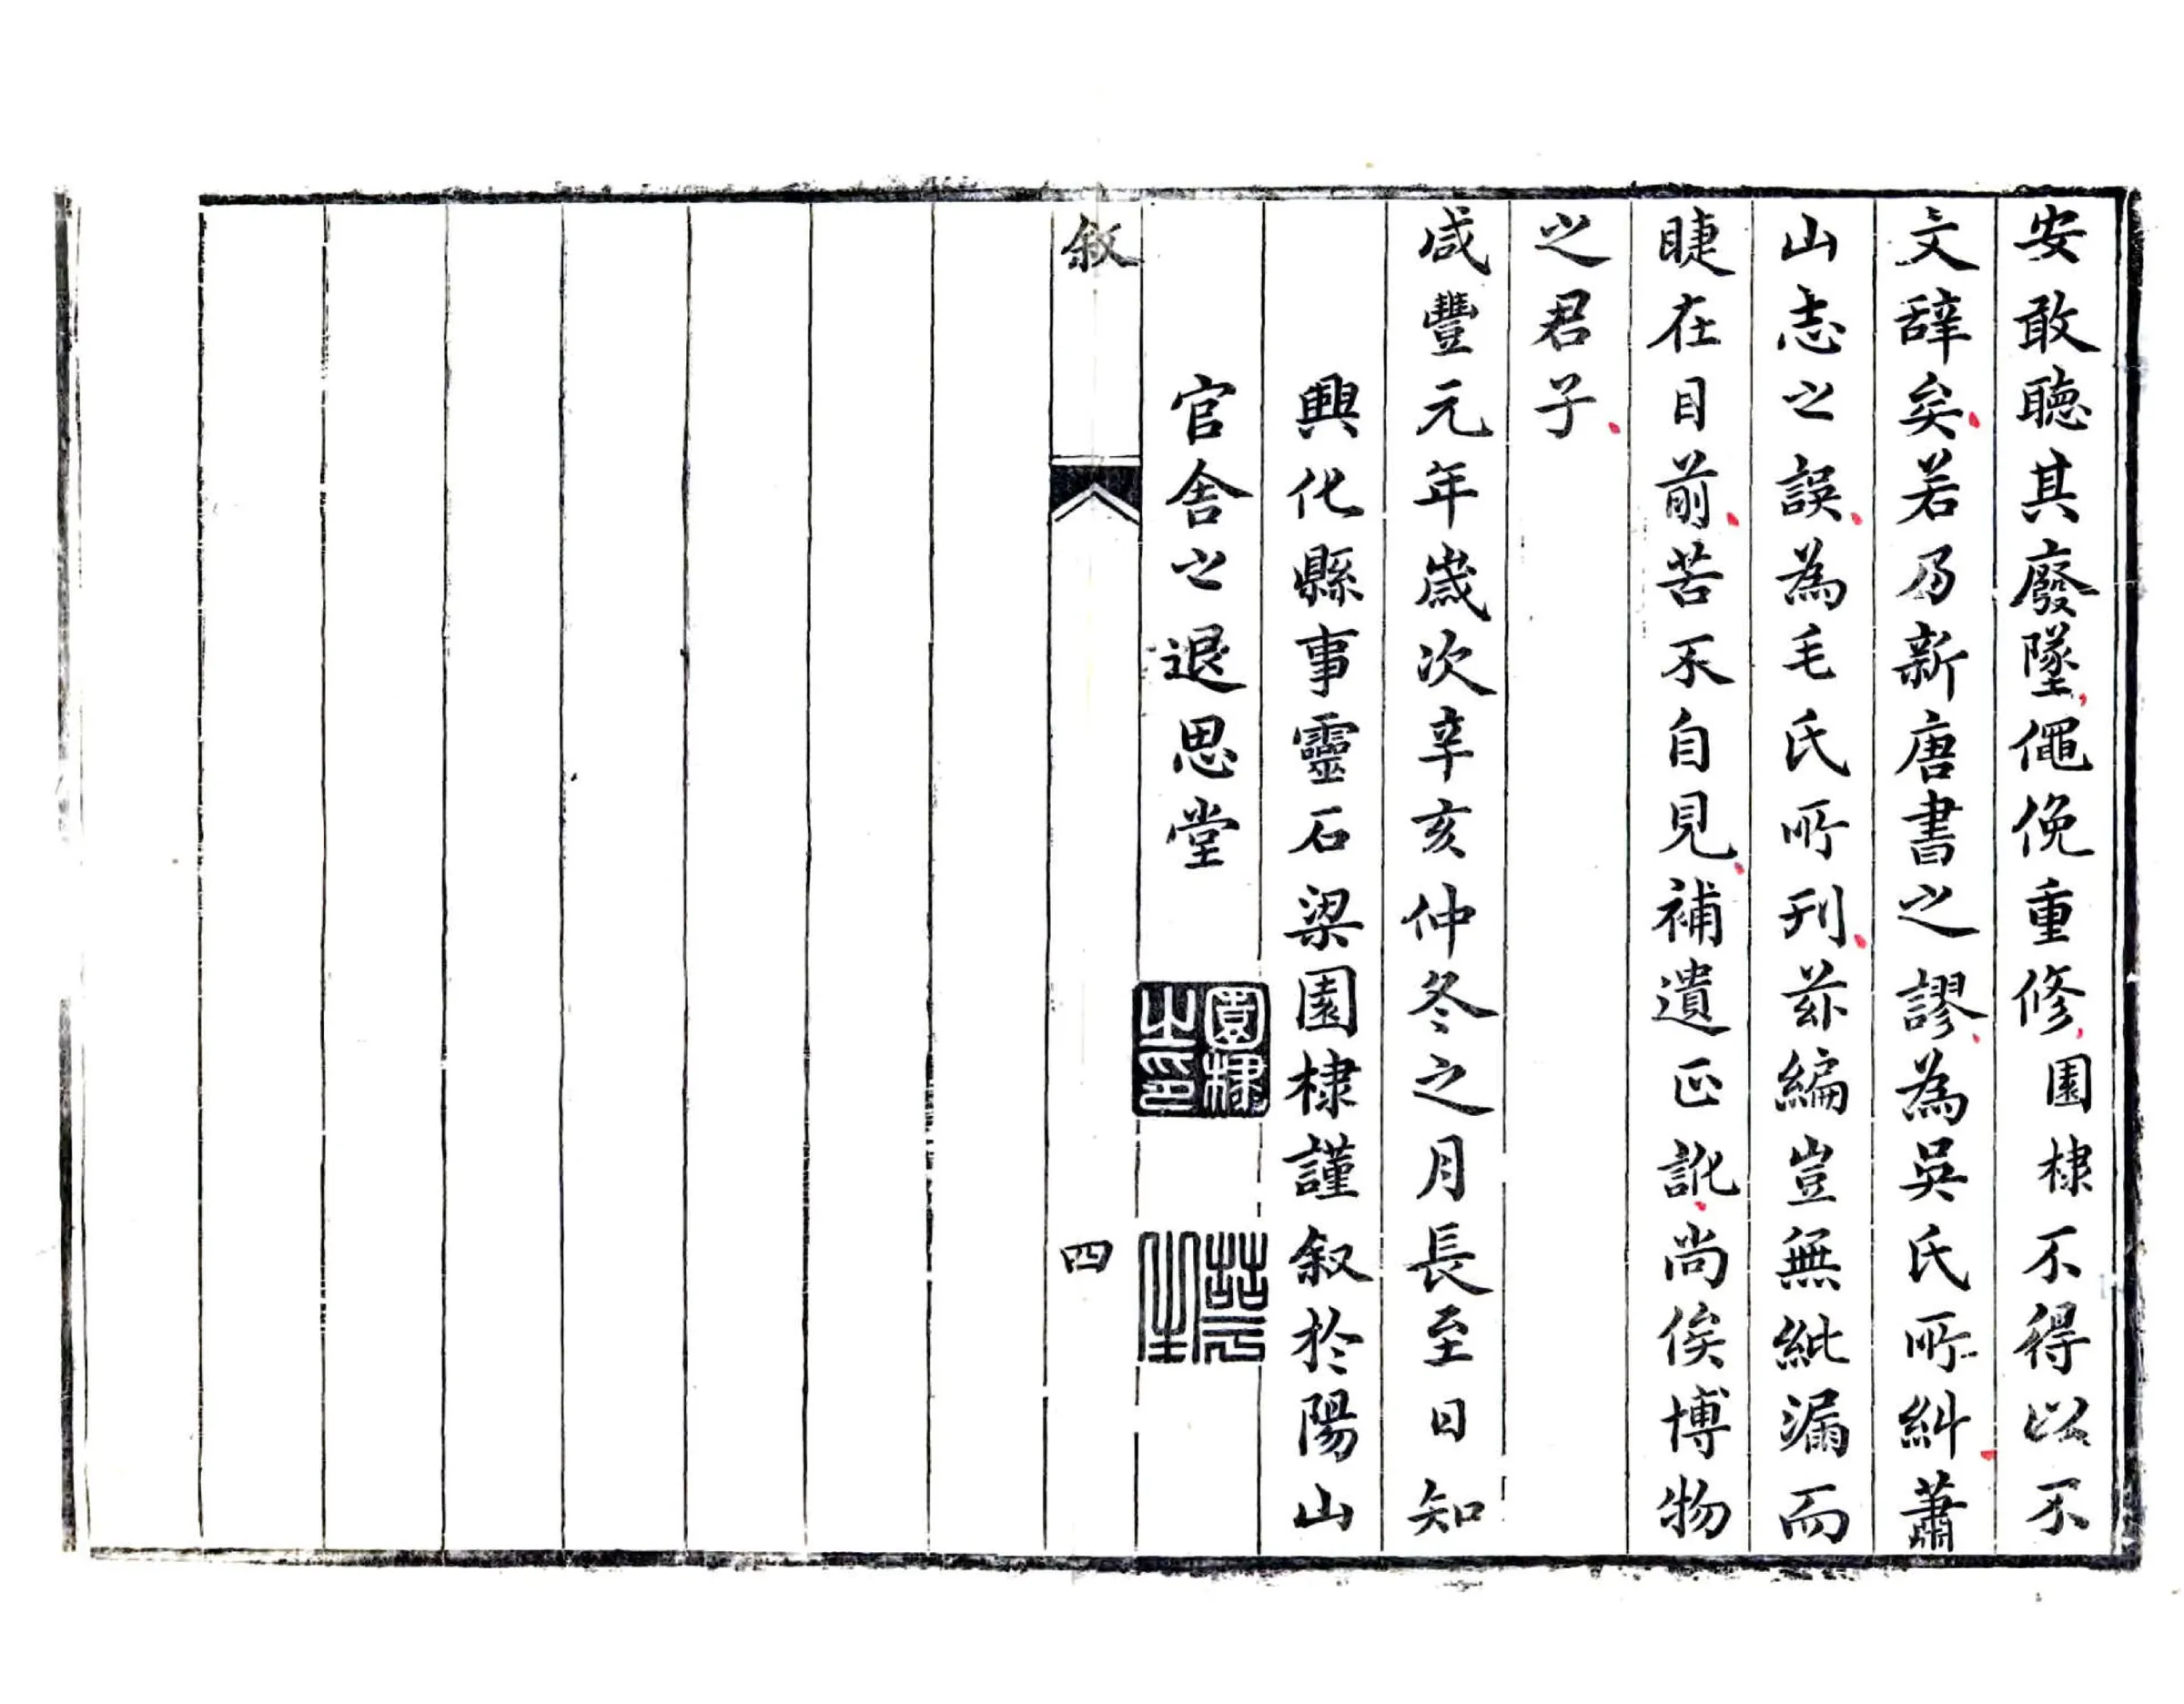 安敢聽其廢墜僶俛重修園棣不得以不
文辭矣若乃新唐書之謬為吳氏所糾蕭
山志之誤為毛氏所刊茲編豈無紕漏而
睫在目前苦不自見補遺正訛尚俟博物
之君子
咸豐元年歲次辛亥仲冬之月長至日知
興化縣事靈石梁園棣謹叙於陽山
官舍之退思堂
園棣之印
敘
四